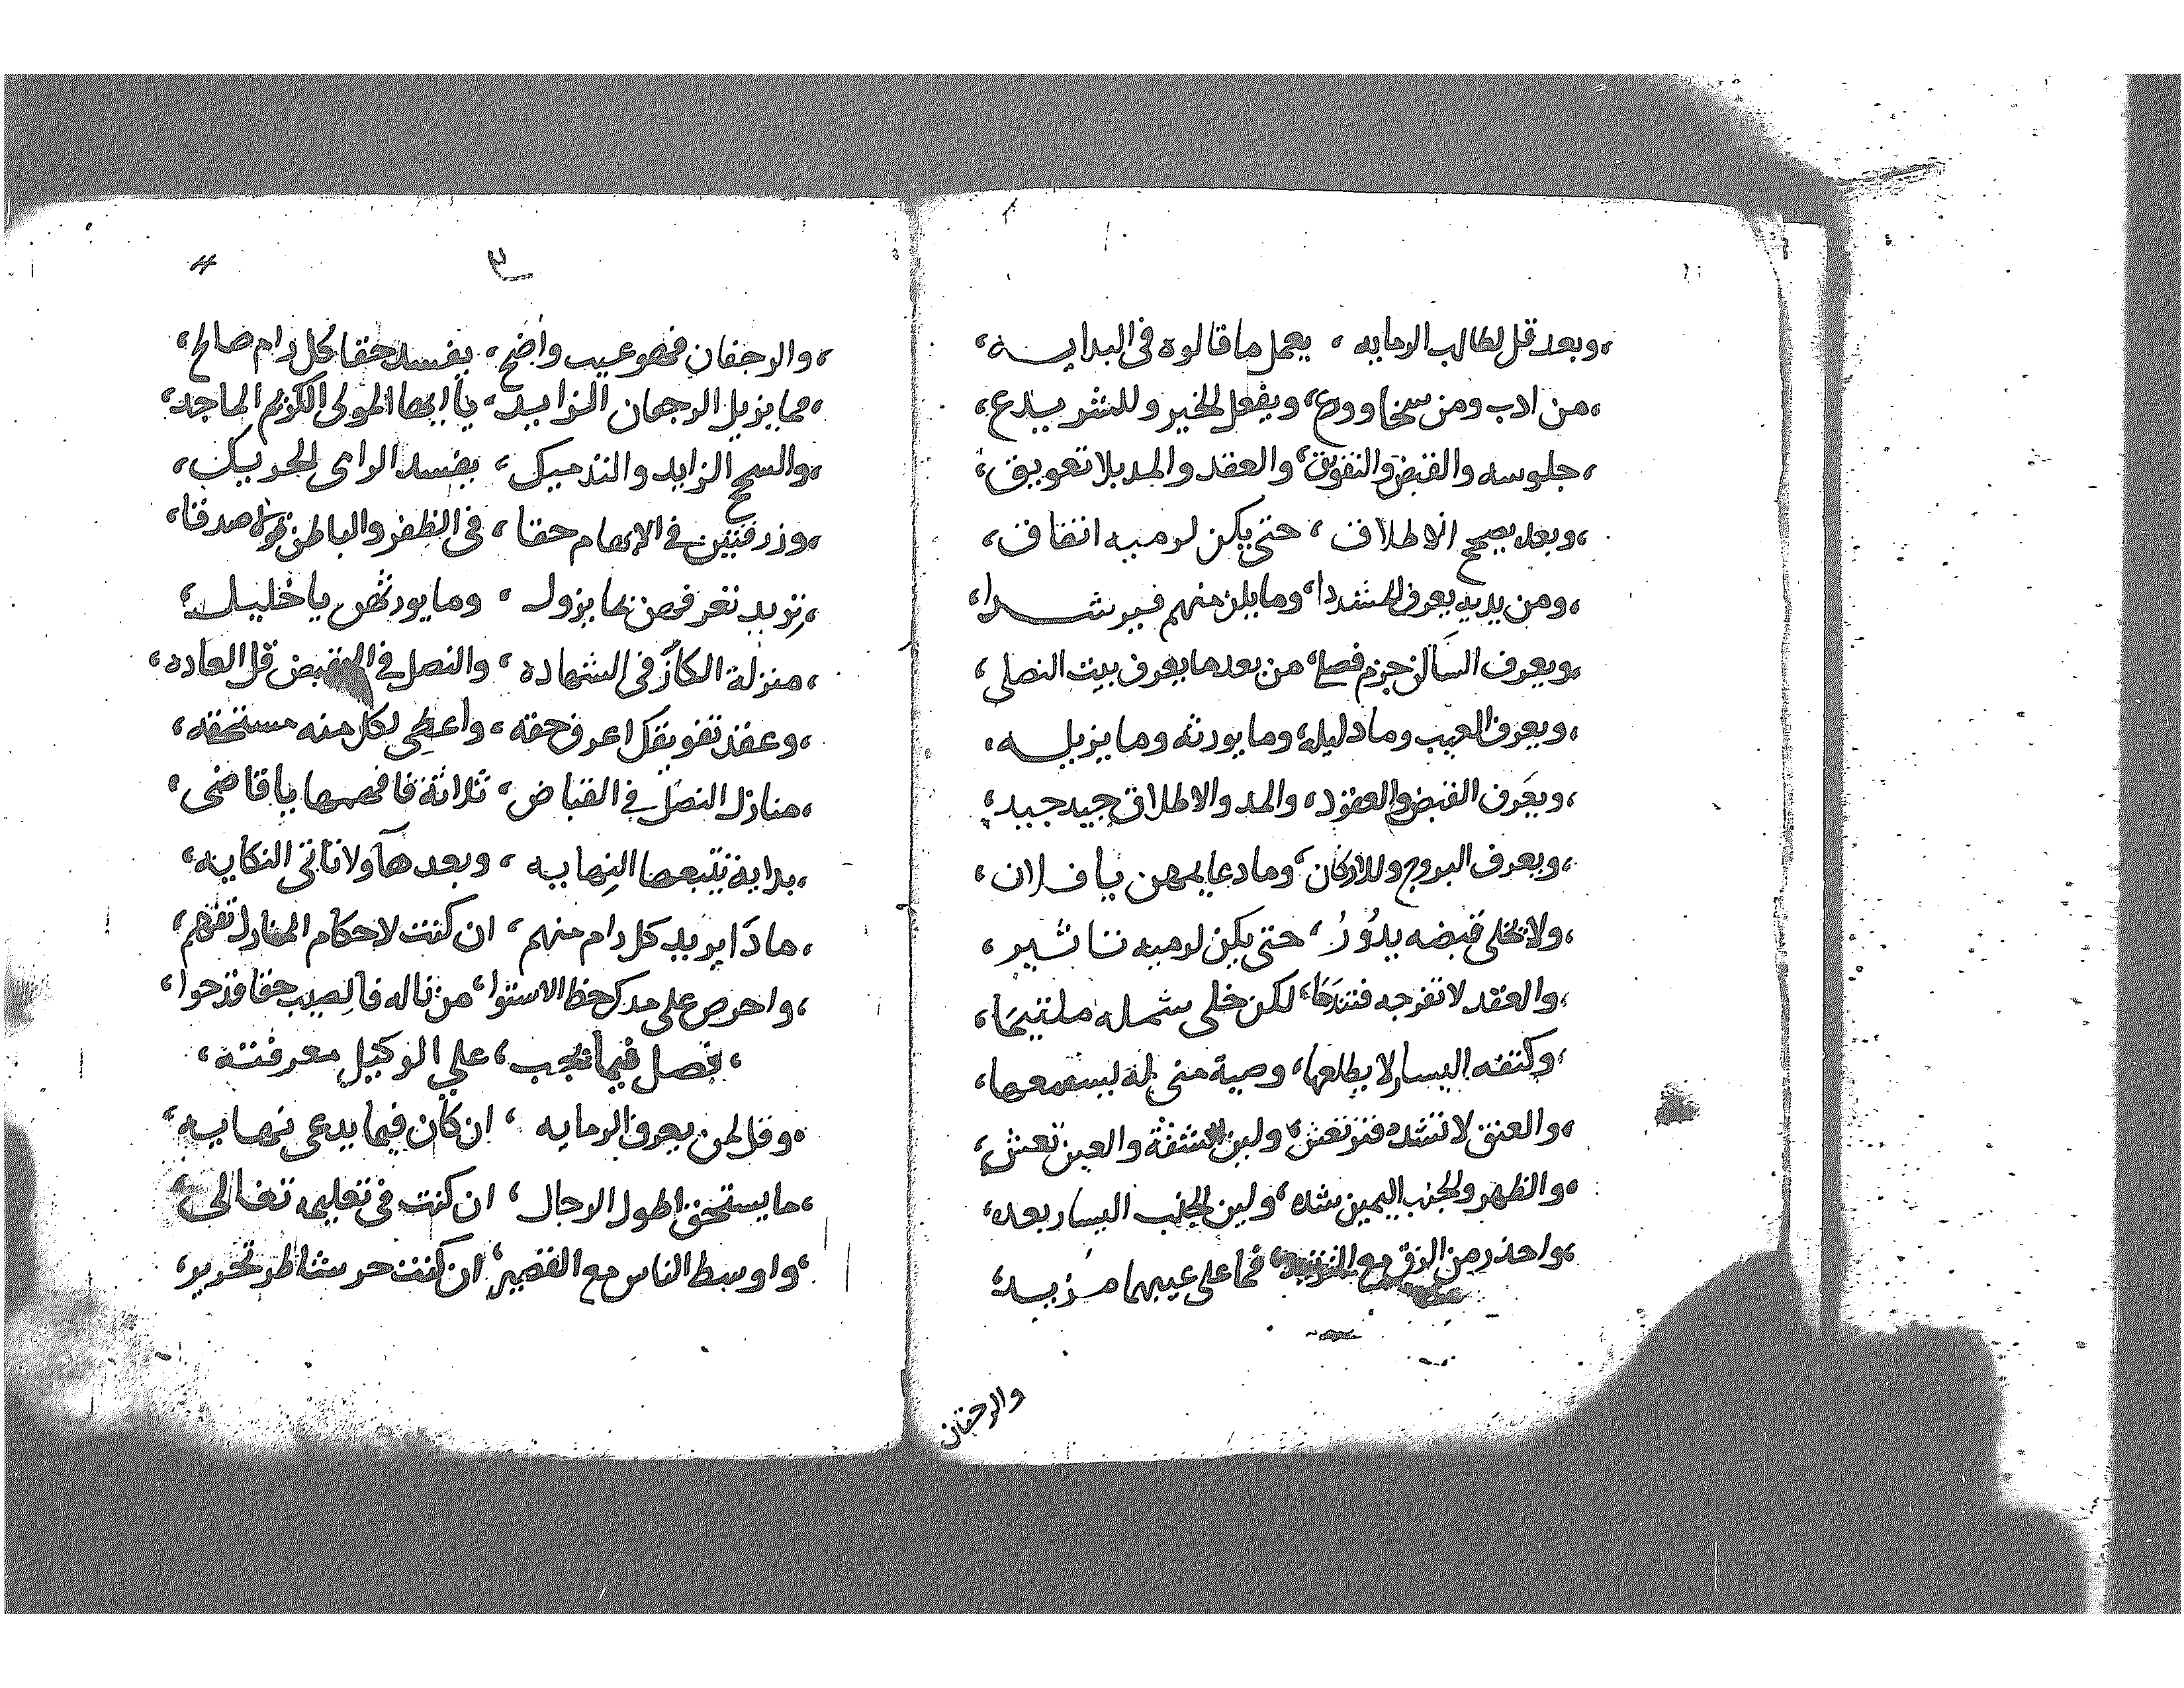 وبعد قل لطالب الرمايه ، يعمل ما قالوه فى البدايـــه
من ادب ومن سخا وورع ، ويفعل الخير وللشر يـدع
جلوسه والقبض والتفويق ، والعقد والمد بلا تعويق
وبعد يصح الاطلاق ، حتى يكن لرميه اتفاق
ومن يديه يعرف المشددا ، وما يلن منهم فيرشـــدا
ويعرف السالن جزم فصلى ، من بعد ما يعرف بيت النصلى
ويعرف العيب وما دليله ، وما يورثه وما يزيلـه
ويعرف القبض والعقود ، والمد والاطلاق جيد جيد
ويعرف البروج وللاركان ، وما دعايمهن يا فـلان
ولا يخلى قبضه يدُوُرُ ، حتى يكن لرميه تاثيـر
والعقد لا تفرجه فتندما ، لكن خلى شمـله ملتيما
وكتفه اليسار لا يطلعها ، وصية منى له ليسمعها
والعنق لا تشده فترتعش ، ولين الشفة والعين تعش
والظهر والجنب اليمين شده ، ولين الجنب اليسار بعده
واحذر من الزق مع ، فما على عيبهما مـزيـد
والرجفان
٣
والرجفان فهو عيب واضح ، يفسد حقا كل رام صالح
مما يزيل الرجفان الـزايـد ، يا ايها المولى الكريم الماجد
والسحج الزايد والتدميك ، يفسد الرامى الحريك
وزرقتين فى الابهام حقا ، فى الظفر والباطن صدقا
تريد تعرفهن بما يزول ، وما يورثهن يا خليـل
منزلة الكاز فى الشهاده ، والنصل فى القبض قل العاده
وعقد تفويقك اعرف حقه ، واعطى لكل منه مستحقه
منازل النصل فى القباض ، ثلاثة فافهمها يا قاضى
بداية تتبعها النهايه ، وبعدها ولا تاتى النكايه
ماذا يريد كل رام منهم ، ان كنت لاحكام المنازل تفهم
واحرص على مدك خط الاستوا ، من ناله فالصيب حقا قد حوا
فصل فيما يجب ، على الوكيل معرفته
وقل لمن يعرف الرمايه ، ان كان فيما يدعى نهايه
ما يستحق اطول الرجال ، ان كنت فى تعليمه تغالى
واوسط الناس مع القصير ، ان كنت حر شاطر تحرير